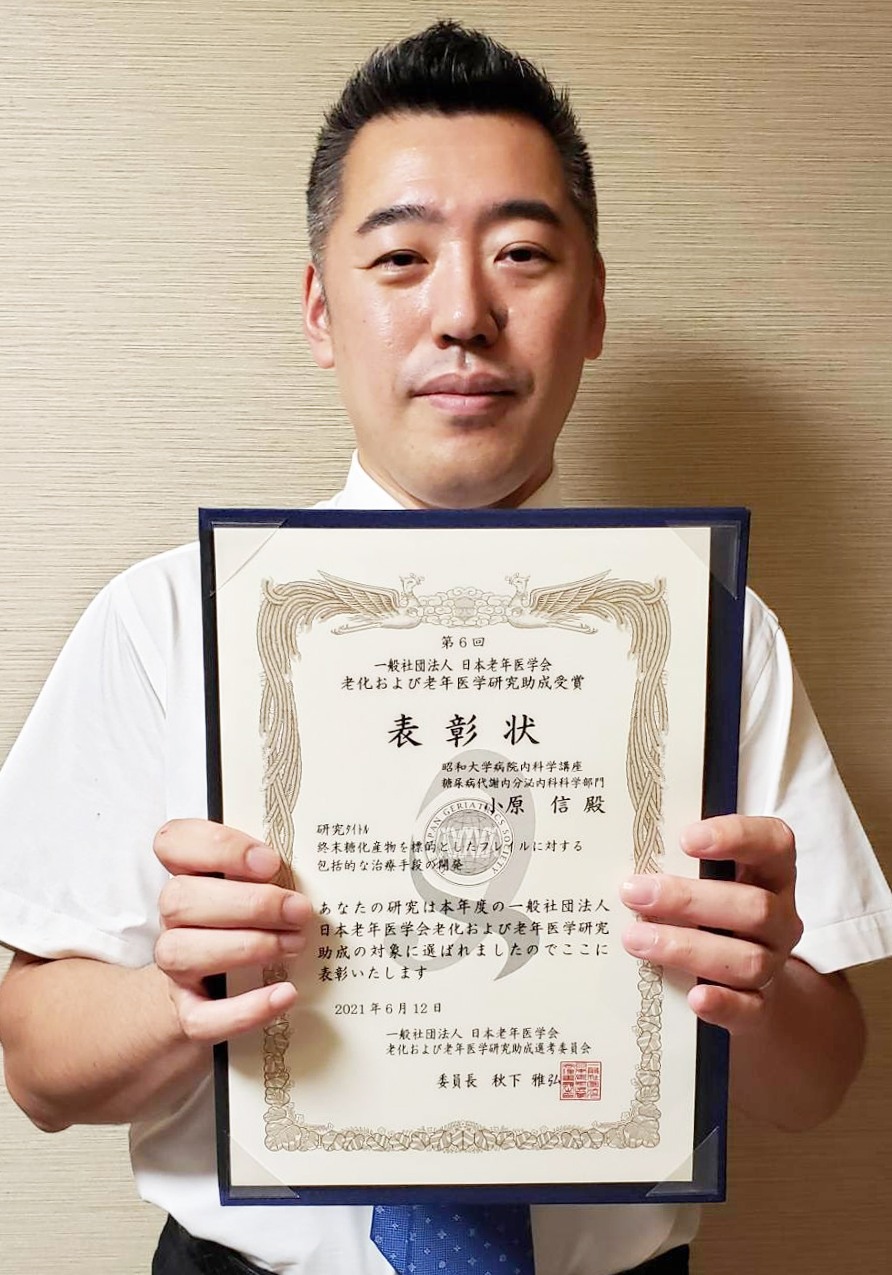 第6回
一般社団法人 日本老年医学会
老化および老年医学研究助成受賞
表彰状
昭和大学病院内科学講座
糖尿病代謝内分泌内科科学部門
小原 信 殿
研究タイトル
終末糖化産物を標的としたフレイルに対する
包括的な治療手段の開発
JAPAN GERIATRICS SOCIETY
あなたの研究は本年度の一般社団法人
日本老年医学会老化および老年医学研究
助成の対象に選ばれましたのでここに
表彰いたします
2021年6月12日
一般社団法人 日本老年医学会
老化および老年医学研究助成選考委員会
委員長 秋下 雅弘